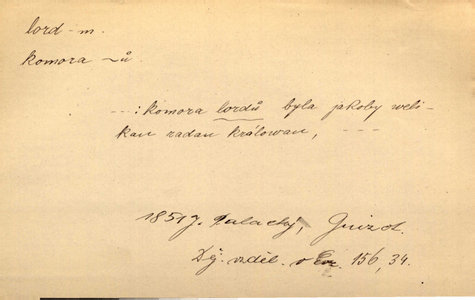 lord - m.
komora ~ů
---: komora lordů byla jakoby weli-
kau radau králowau, ---
1851 J. Malachý, Guizot.
Dj. vděl. v Eur. 156, 34.